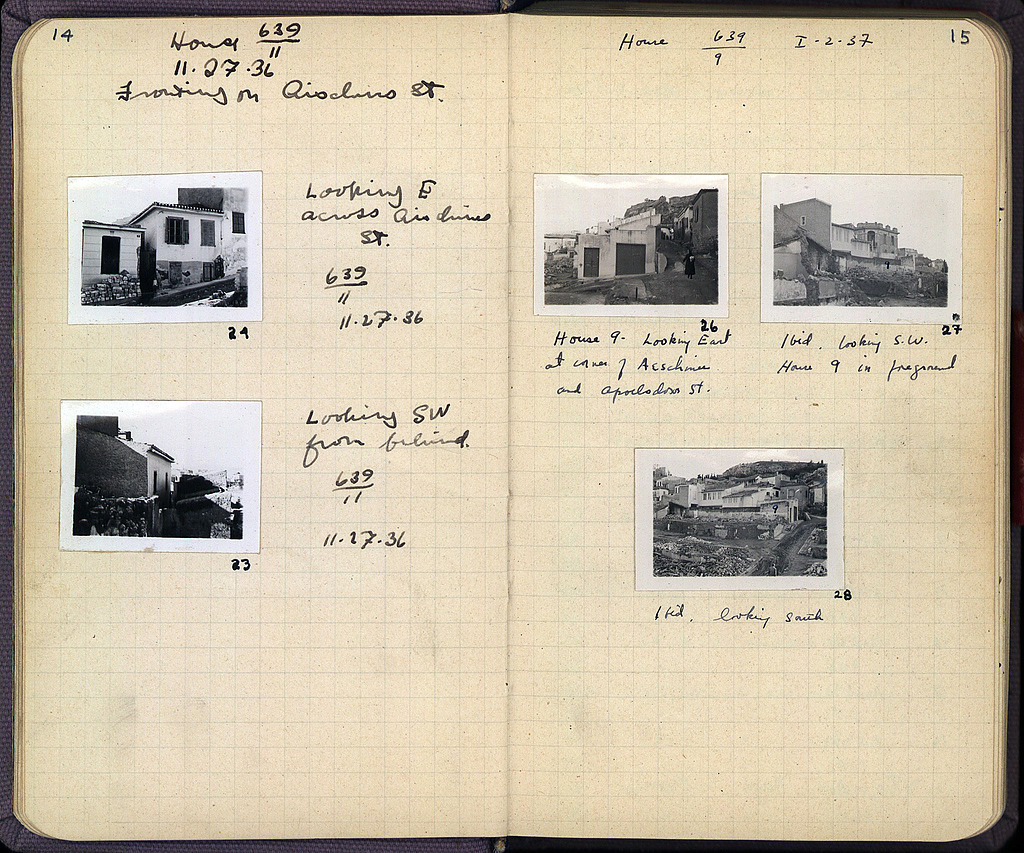 14
House 639/11
11.27.36
Fronting on Aischines St.
Looking E
across Aischines
St.
639/11
11.27.36
24
Looking SW
from behind.
639/11
11.27.36
23
House 639/9 I-2-37
15
26
House 9 - Looking East
at corner of Aeschines
and Apollodoros St.
27
Ibid. looking S.W.
House 9 in foreground
9
28
Ibid. looking south